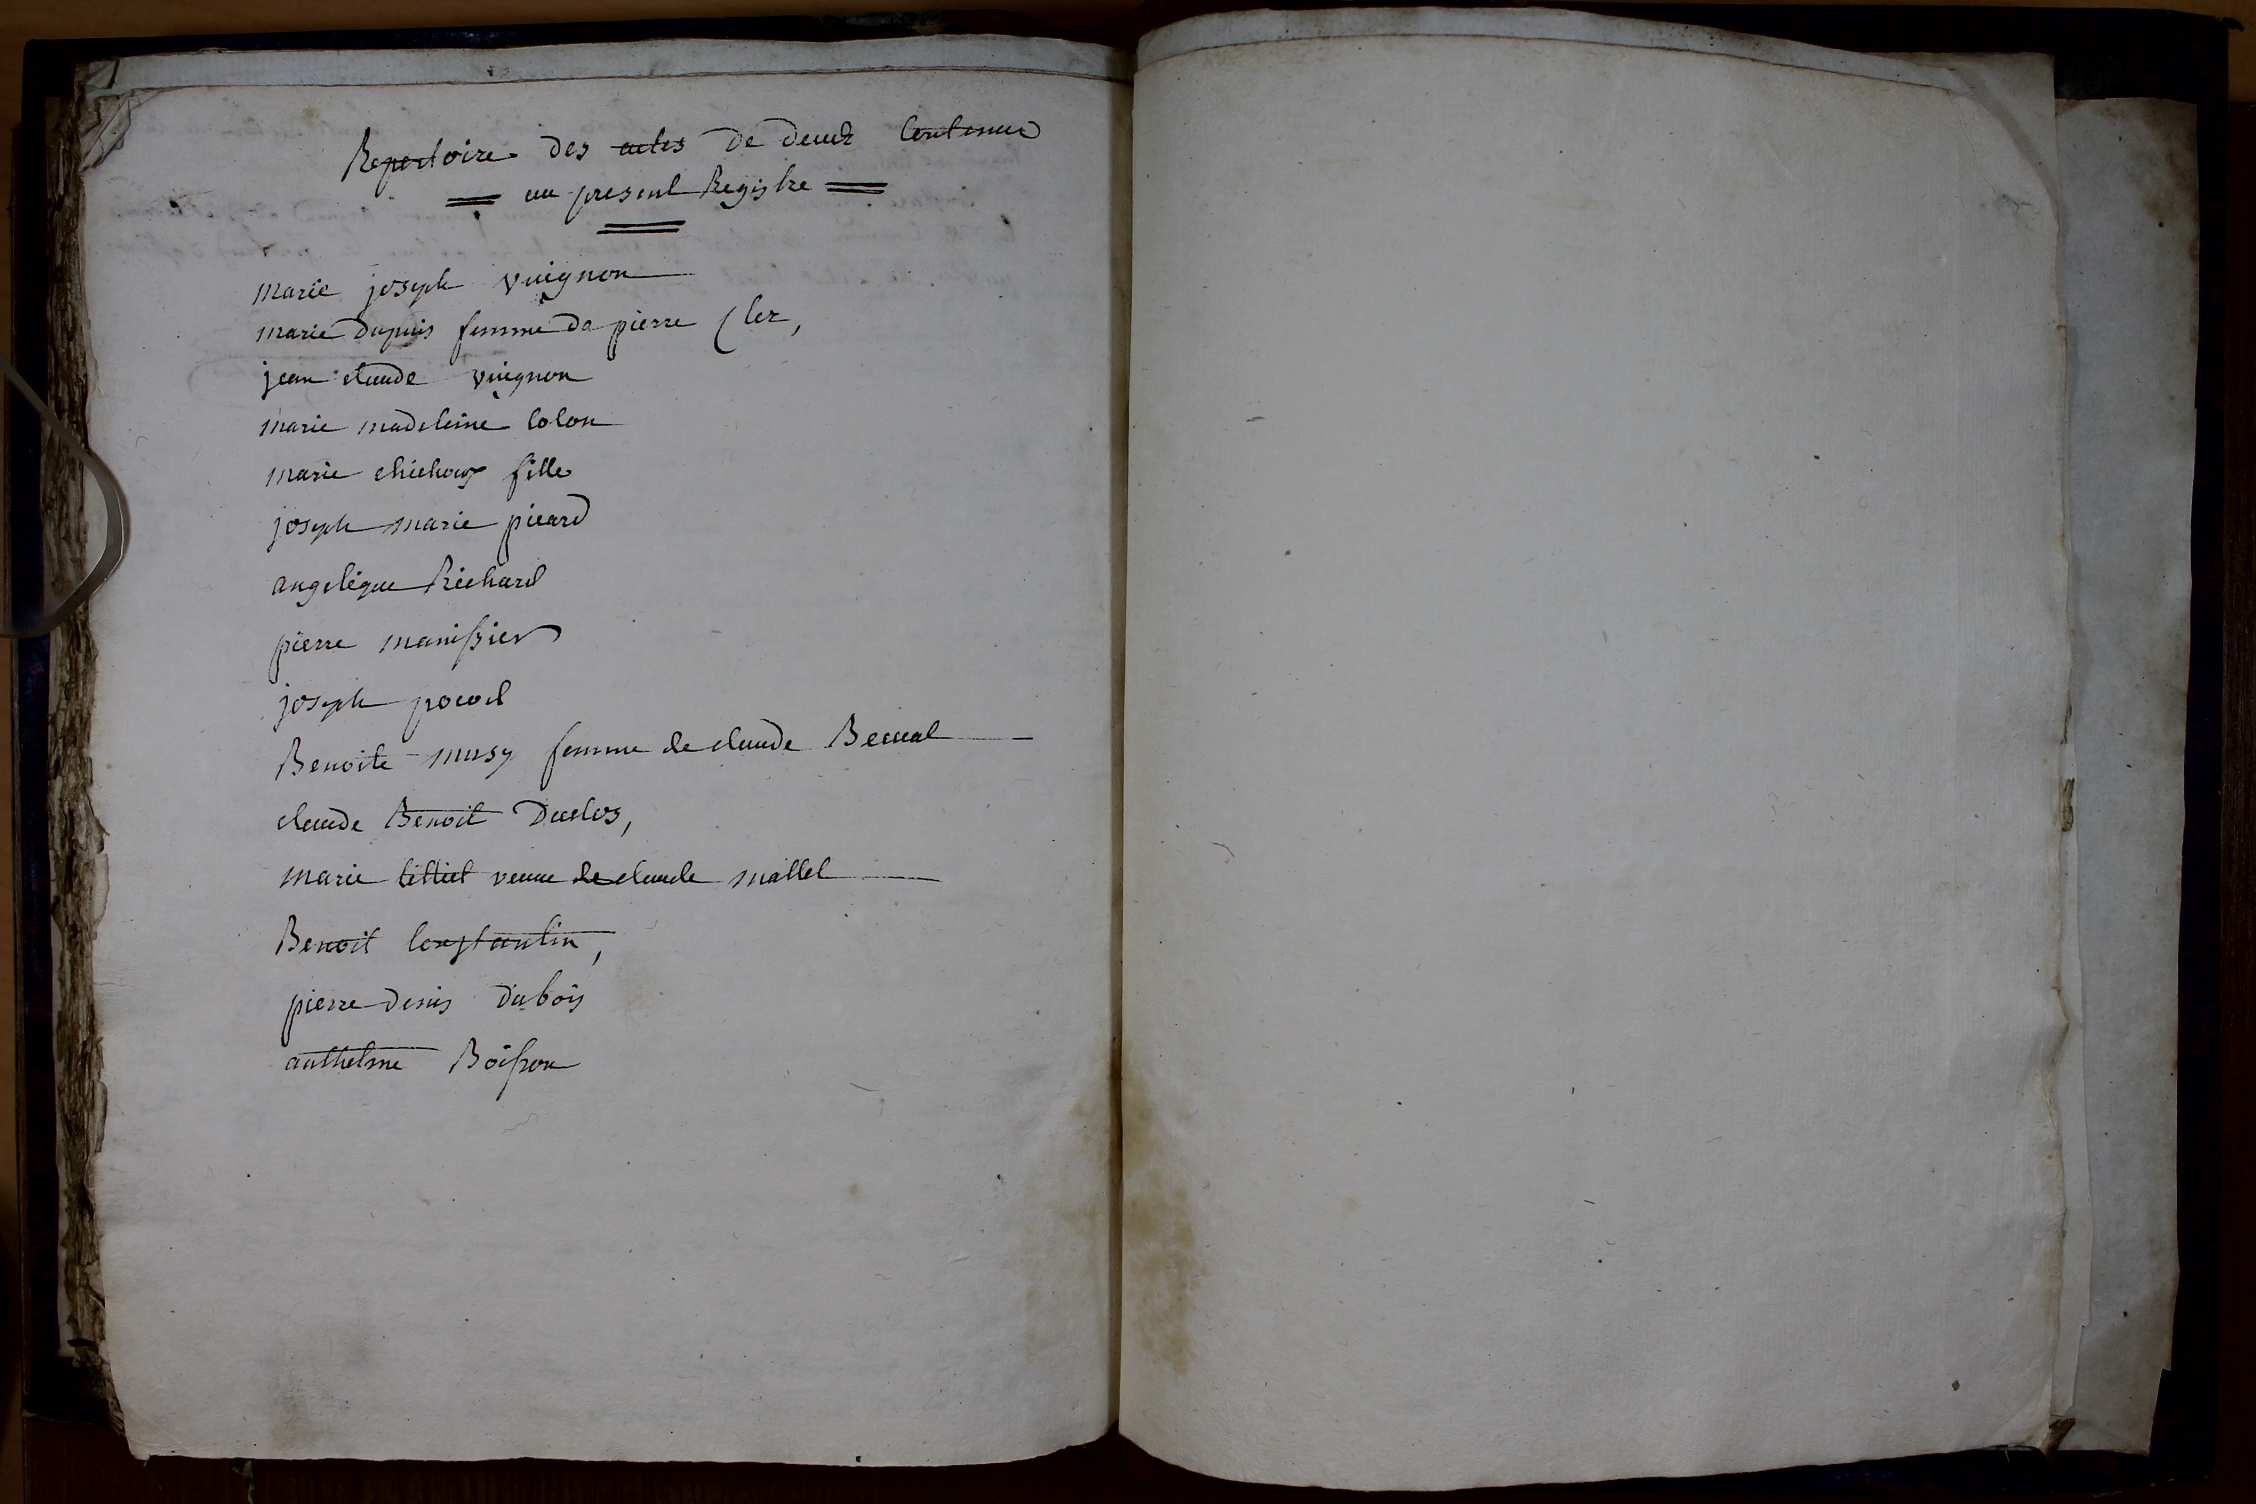 Repertoire des actes de decez Contenue
au present Registre
marie joseph vuignon
marie dupuis femme de pierre Clez,
jean claude vuignon
marie madeleine Colon
marie chichoux fille
joseph marie picard
angelique Richard
pierre manissier
joseph pocod
Benoite musy femme de claude
claude Benoit Duclos,
marie tillict veuve de claude mallet
Benoit Constantin,
pierre denis dubois
anthelme Boisson